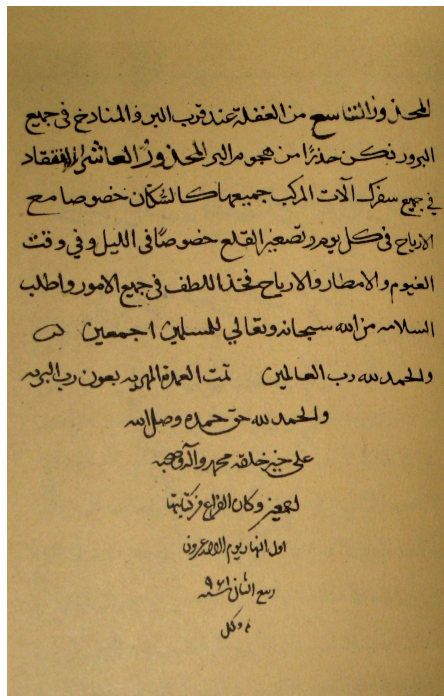 المحذور التاسع من الغفلة عند قرب البر والمنادخ في جميع
البرور نكن حذرًا من هجوم البر المحذور العاشر افتقاد
في جميع سفرك آلات المركب جميعها كالسُّكّان خصوصا مع
الارياح في كل يوم وتصغير القلع خصوصًا في الليل وفي وقت
الغيوم والامطار والارياح فخذ اللطف في جميع الامور واطلب
السلامه من الله سبحانه وتعالي للمسلمين اجمعين
والحمد لله رب العالمين تمت العمدة المهريه بعون رب البريه
والحمد لله حق حمده وصل الله
على خير خلقه محمد وآله وصحبه
اجمعين وكان الفراغ من كتابتها
اول النهار يوم الاحد
ربيع الثاني سنه ٩٦١